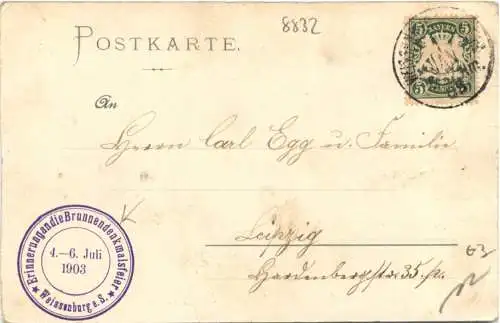 8832
POSTKARTE.
5 5
5 5
An
Herrn Carl Egg u. Familie
Leipzig
Hardenbergstr. 35.
Erinnerung an die Brunnendenkmalsfeier
4.–6. Juli
1903
Weissenburg a. S.
03